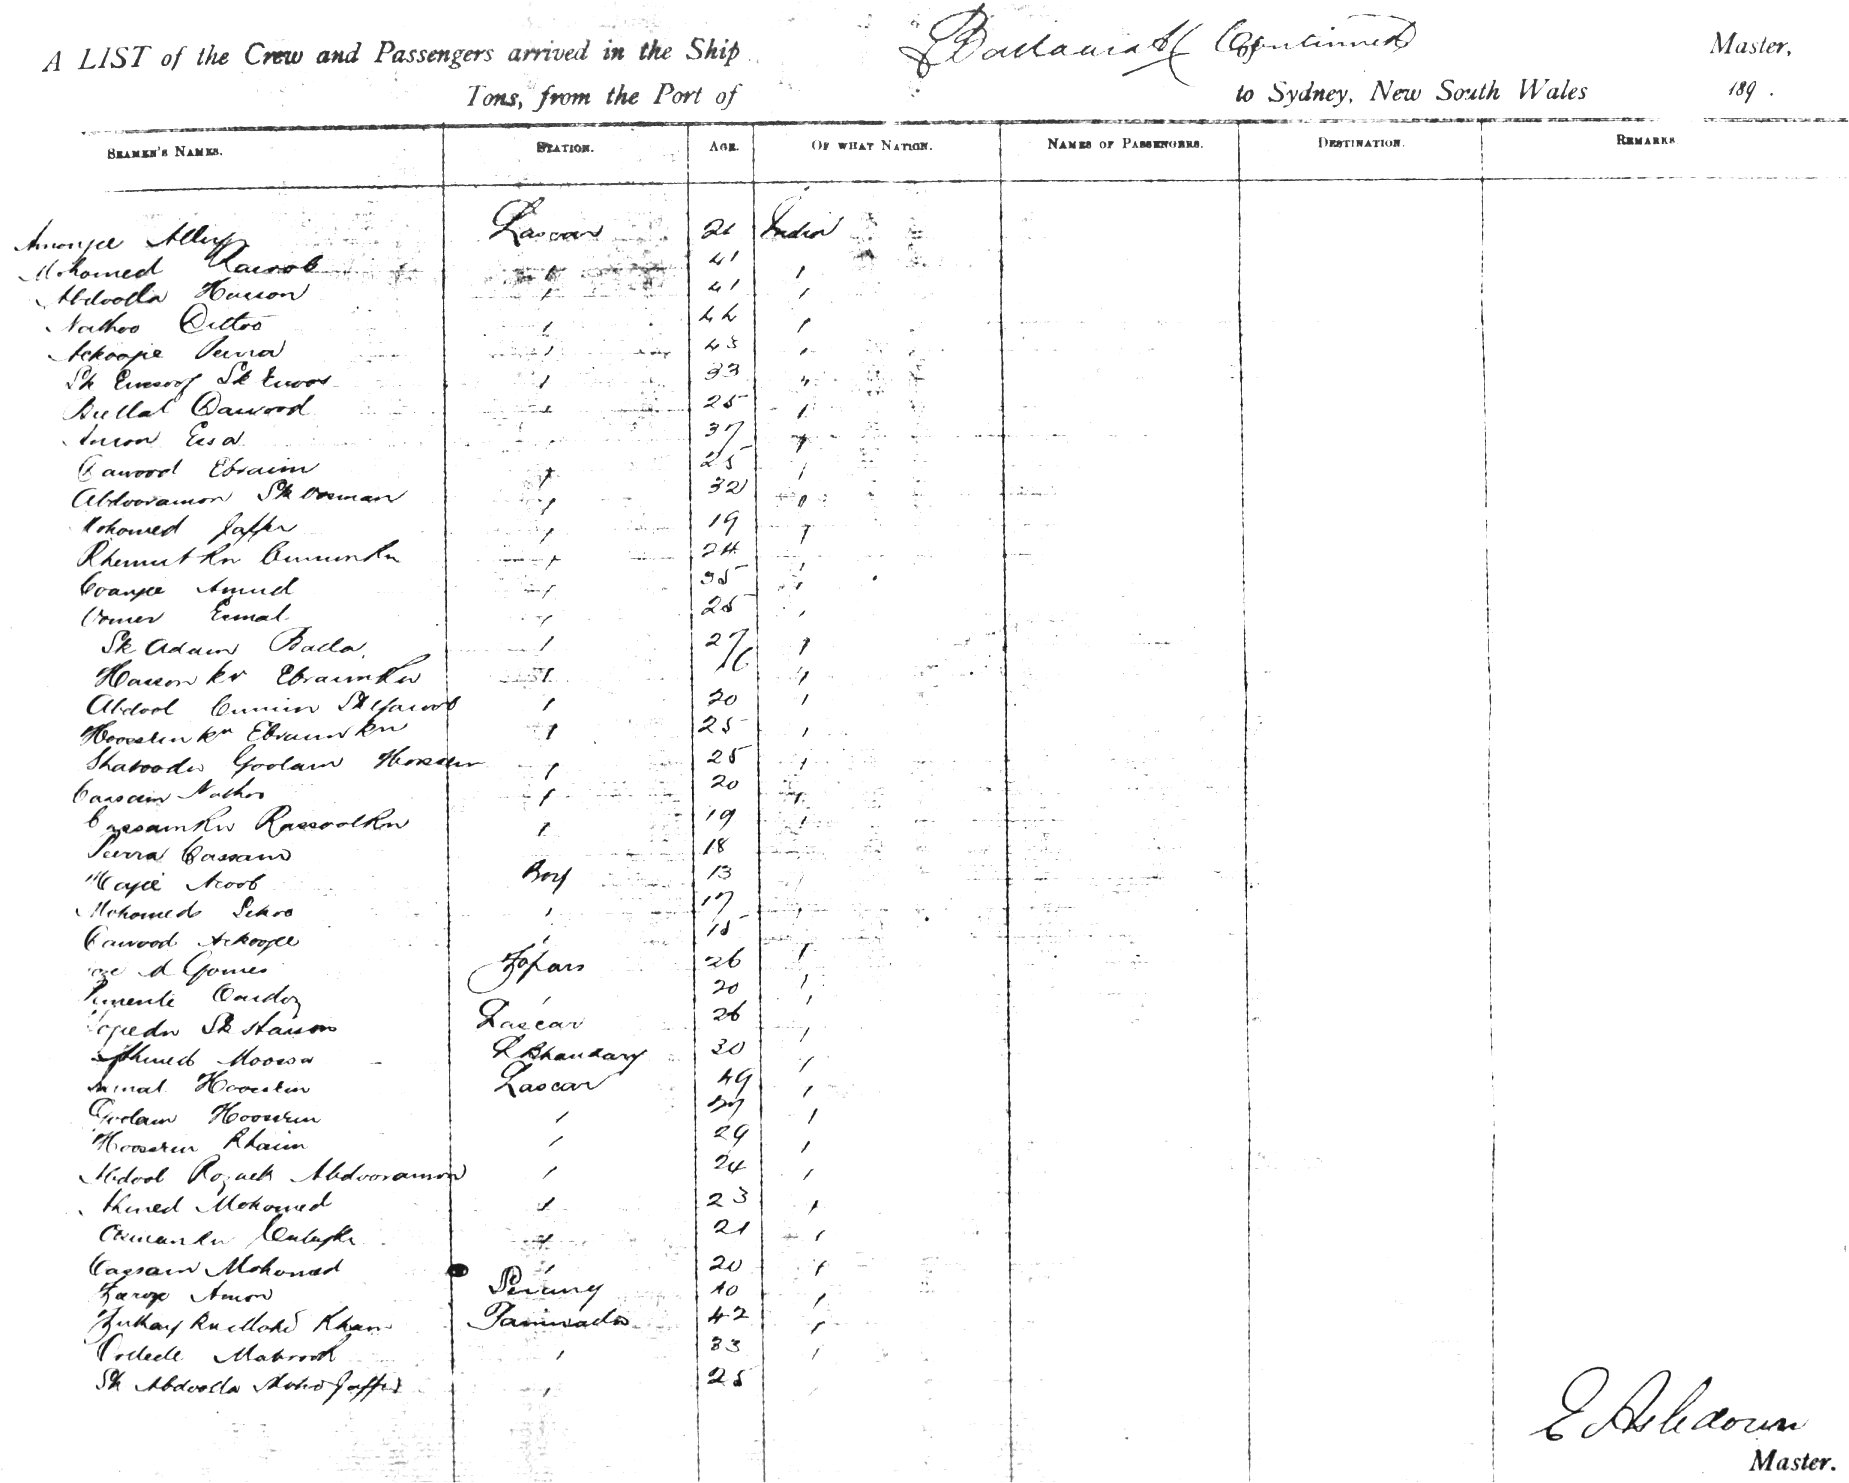 A LIST of the Crew and Passengers arrived in the Ship Ballaarat Continued Master,
Tons, from the Port of to Sydney, New South Wales 189 .
SEAMEN'S NAMES. STATION. AGE. OF WHAT NATION. NAMES OF PASSENGERS. DESTINATION. REMARKS
Amonjee Ally Lascar 21 India
Mohomed 41 "
Abdoolla Hasson " 41 "
Nathoo Dittoo " 44 "
Ackoojee Peera " 43 "
Sk Sk " 33 "
Dawood " 25 "
Essa 37 "
Dawood Ebraim " 25 "
Abdooramon Sk Oosman " 32 "
Mohomed Jaffer " 19 "
Rhemut Kn " 24 "
Amud " 35 "
Oomer Esmal " 25 "
Sk Adam Balla " 27 "
Hasson Kn Ebraim Kn " 16 "
Abdool Sk Yacoob " 20 "
Hoossein Kn Ebraim Kn " 25 "
Shaboodn Goolam Hossein " 25 "
Cassam Nathoo " 20 "
Cassam Kn Rassool Kn " 19 "
Peera Cassam 18
Hajee Acoob Boy 13 "
Mohomed " 17 "
Dawood Ackoojee " 15 "
Gomes Topass 26 "
Cardoz " 20 "
Sk Hasson Lascar 26 "
Ahmed Moosa L Bhandary 30 "
Esmal Hoossein Lascar 49 "
Goolam Hoossein " "
Hoossein Rhaim " 29 "
Abdool Rozack Abdooramon " 24 "
Ahmed Mohomed " 23 "
Osman Kn " 21 "
Cassam Mohomed " 20 "
Amon Serang 40 "
Khan 42 "
Mabrook " 33 "
Sk Abdoolla Mohd Jaffer " 25
E Ashdown
Master.